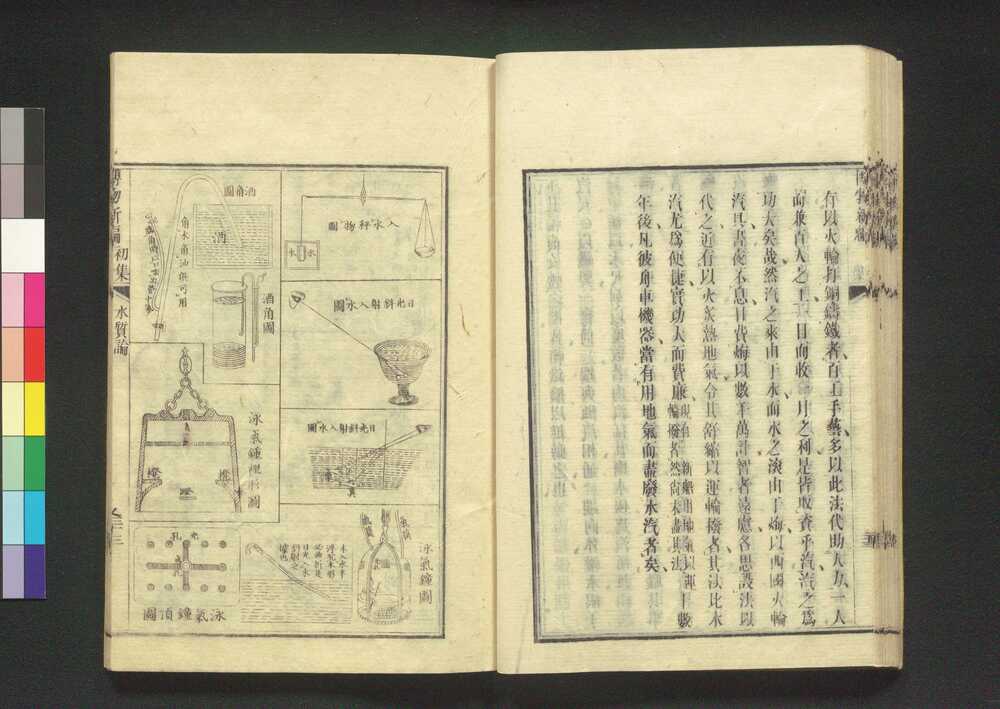 有以火輪打銅鑄鐵者百工手藝多以此法代助人力一人
而兼百人之工一日而收一月之利是皆取資乎汽汽之爲
功大矣哉然汽之來由于水而水之淡由于煤以西國火輪
汽具晝夜不息日費煤以數千萬計智者遠慮各思設法以
代之近有以火炎熱地氣令其舒縮以運輪撥者其法比水
汽尤爲便捷實功大而費廉
年後凡彼舟車機器當有用地氣而盡廢水汽者矣
入水秤物圖
水
水
日光斜射入水圖
日光斜射入水圖
泳氣鐘圖
酒角圖
酒
角水角油俱可用
酒角圖
泳氣鐘裡形圖
光孔
泳氣鐘頂圖
博物新編
初集
水質論